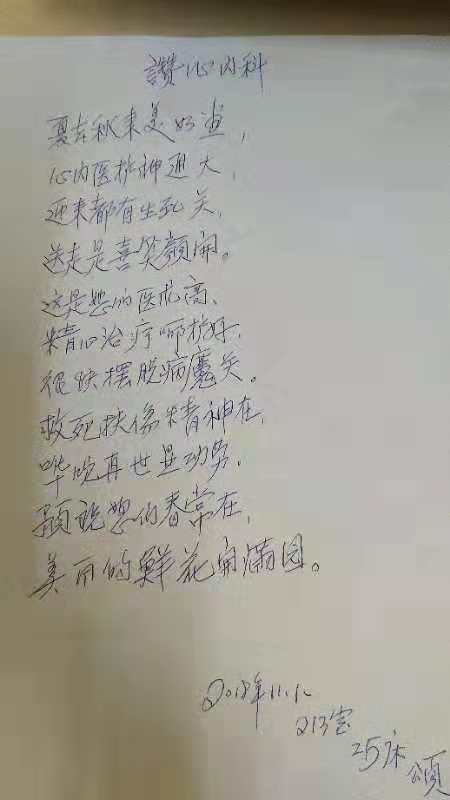 讚心内科
夏去秋来美好
心内医护神通大,
迎来都有生死关,
送走是喜笑颜開。
这是您的医术高、
精心治疗 护好,
很快摆脱病魔关。
救死扶傷精神在,
华陀再世是功劳,
願祝您们春常在,
美丽的鮮花開滿园。
2018年11.1
213室
25床 頌